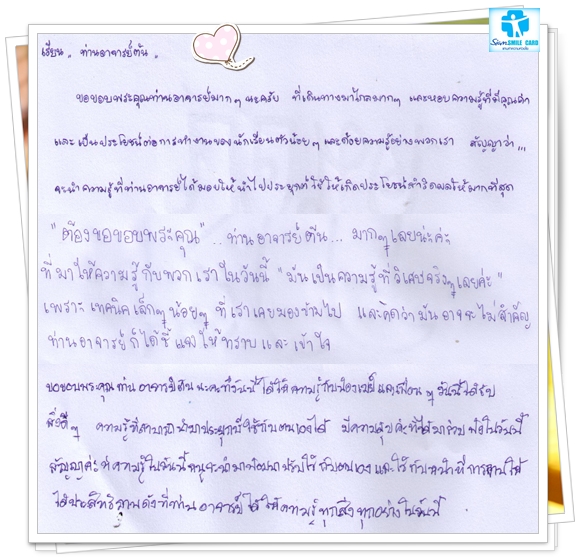 Siam SMILE CARD
เรียน. ท่านอาจารย์ต้น.
ขอขอบพระคุณท่านอาจารย์มากๆ นะครับ ที่เดินทางมาไกลมากๆ และมอบความรู้ที่มีคุณค่า
และเป็นประโยชน์ต่อการทำงานของนักเรียนตัวน้อยๆ และด้อยความรู้อย่างพวกเรา สัญญาว่า...
จะนำความรู้ที่ท่านอาจารย์ได้มอบให้นำไปประยุกต์ใช้ให้เกิดประโยชน์สำริดผลให้มากที่สุด
"ต้องขอขอบพระคุณ"... ท่านอาจารย์ตีน... มากๆเลยน่ะค่ะ
ที่มาให้ความรู้กับพวกเราในวันนี้ "มันเป็นความรู้ที่วิเศษจริงๆเลยค่ะ"
เพราะ เทคนิคเล็กๆน้อยๆ ที่เราเคยมองข้ามไป และคิดว่ามันอาจจะไม่สำคัญ
ท่านอาจารย์ก็ได้ชี้แจงให้ทราบและเข้าใจ
ขอบขอบพระคุณท่านอาจารย์ นะคะที่วันนี้ได้ให้ความรู้กับน้อง และเพื่อนๆ วันนี้ได้รับ
สิ่งดีๆ ความรู้ที่สามารถนำมาประยุกต์ใช้กับตนเองได้ มีความสุขค่ะที่ได้มาร่วม ในวันนี้
สัญญาค่ะว่าความรู้ในวันนี้หนูจะนำมา ปรับใช้กับตนเองและใช้กับหน้าที่การงานให้
ได้ประสิทธิภาพดังที่ท่านอาจารย์ได้ให้ความรู้ทุกสิ่งทุกอย่างในวันนี้